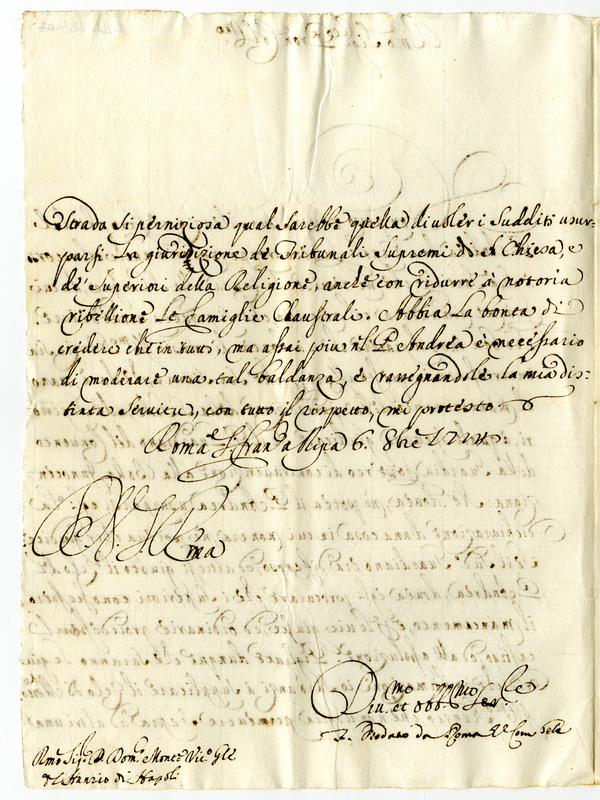 strada si perniziosa qual sarebbe quella di voler i sudditi usur-
parsi la giurisdizione de Tribunali Supremi di S. Chiesa, e
de Superiori della Religione, anche con ridurre à notoria
ribellione le famiglie Claustrali. Abbia la bontà di
credere che in tutti, ma assai più nel P. Andrea è necessario
di moderare una tal baldanza, e rassegnandole la mia dis-
tinta servitù, con tutto il rispetto, mi protesto
Roma S. Fran. a Ripa 6. 8bre
V. S. Ill.ma
Div.mo et obb.mo Ser.
da Roma
Rmo Sig. D. Dom.
Nunzio di Napoli